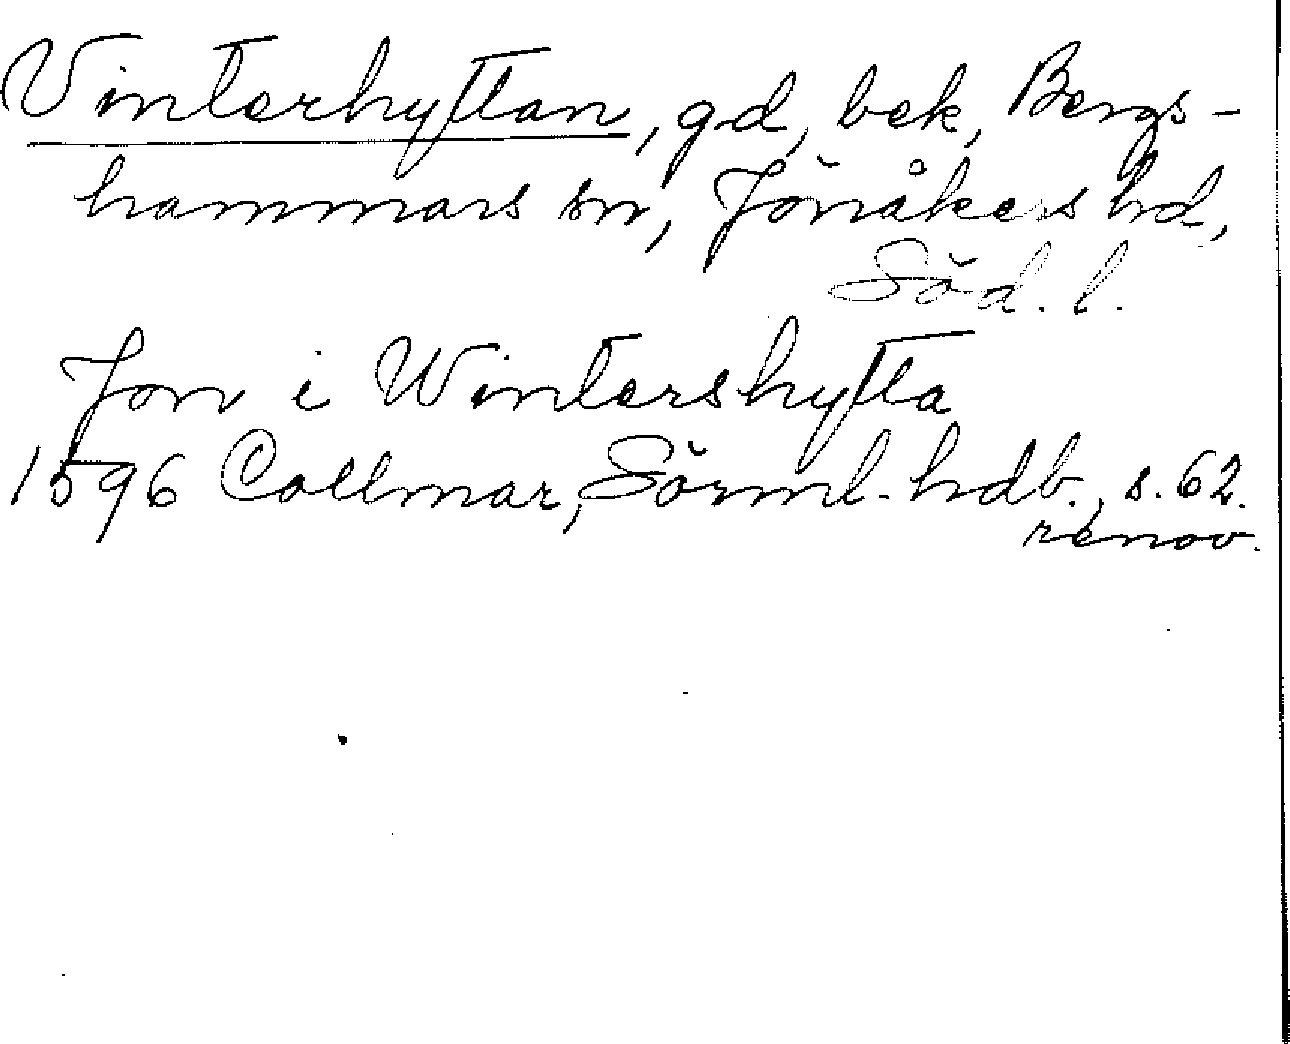 Vinterhyttan, gd, bek, Bergs-
hammars sn, Jönåkers hd,
Söd. l.
Jon i Wintershytta
1596 Collmar, Sörml. hdb., s. 62.
renov.